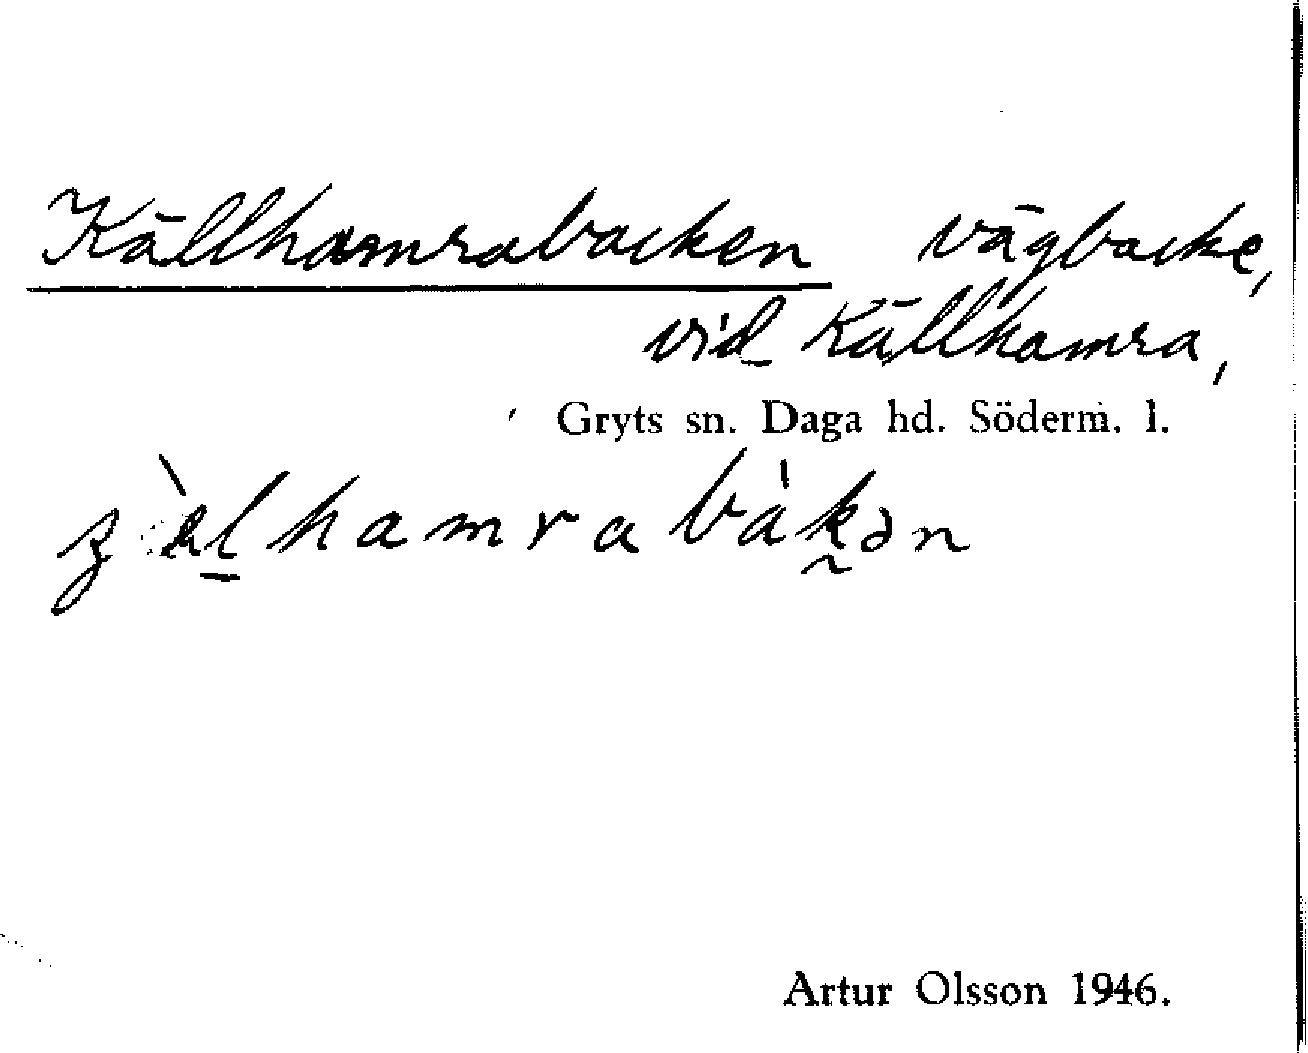 Källhamrabacken vägbacke,
vid Källhamra,
Gryts sn. Daga hd. Söderm. l.
Artur Olsson 1946.